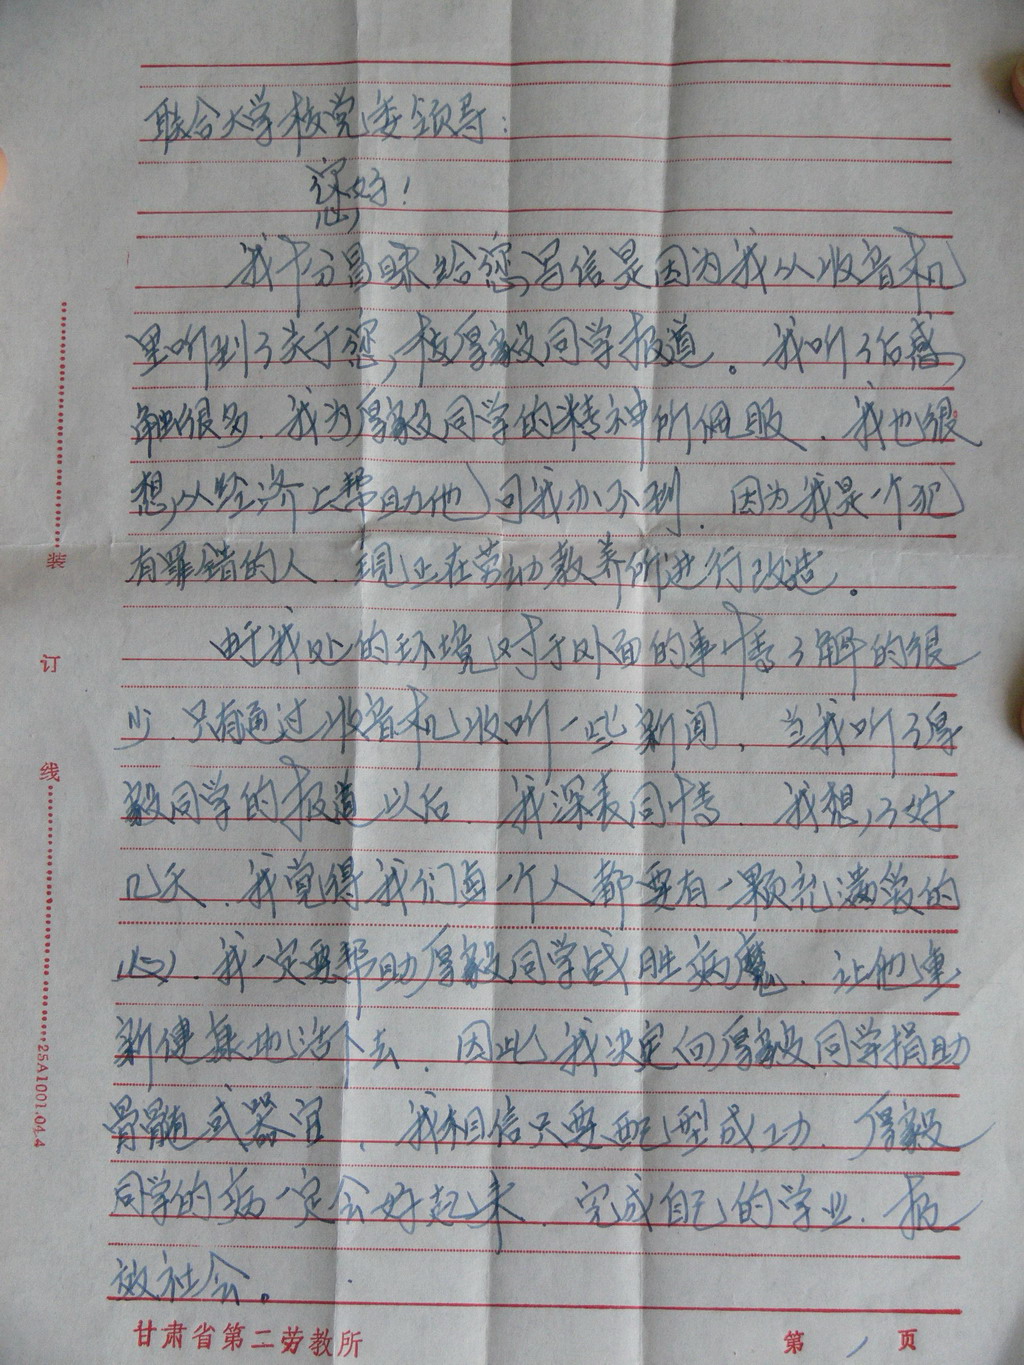 联合大学校党委领导：
您好！
我十分冒昧给您写信是因为我从收音机
里听到了关于您校厚毅同学报道。我听了后感
触很多．我为厚毅同学的精神所佩服．我也很
想从经济上帮助他可我办不到．因为我是一个犯
有罪错的人．现正在劳动教养所进行改造。
由于我处的环境对于外面的事情了解的很
少．只有通过收音机收听一些新闻．当我听了厚
毅同学的报道以后．我深表同情．我想了好
几天．我觉得我们每一个人都要有一颗充满爱的
心．我一定要帮助厚毅同学战胜病魔．让他重
新健康地活下去．因此我决定向厚毅同学捐助
骨髓或器官．我相信只要配型成功．厚毅
同学的病一定会好起来．完成自己的学业．报
效社会。
装
订
线
25A1001.04.4
甘肃省第二劳教所
第 1 页